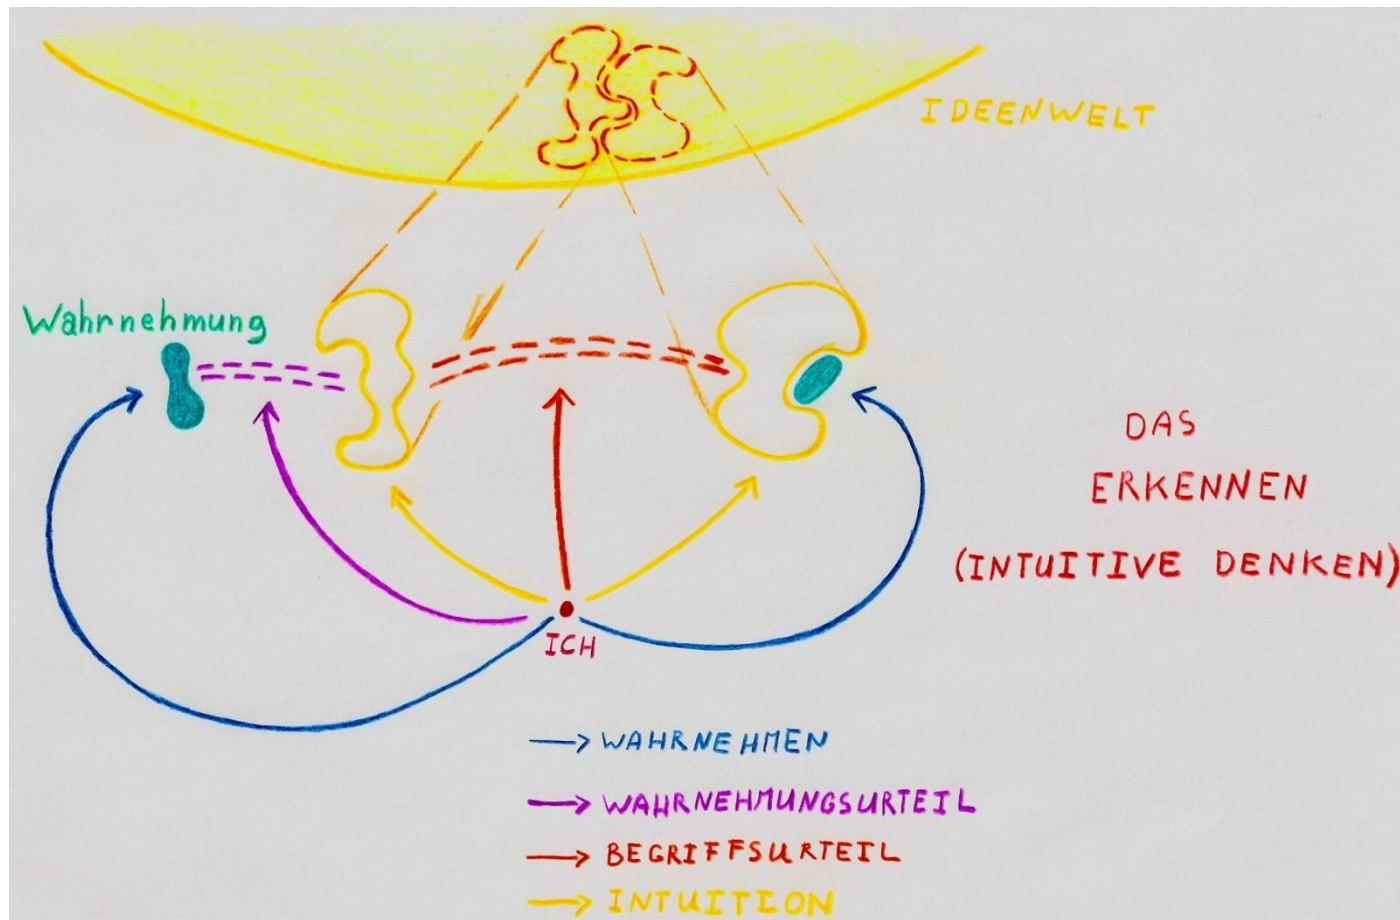 IDEENWELT
Wahrnehmung
DAS
ERKENNEN
(INTUITIVE DENKEN)
ICH
WAHRNEHMEN
WAHRNEHMUNGSURTEIL
BEGRIFFSURTEIL
INTUITION